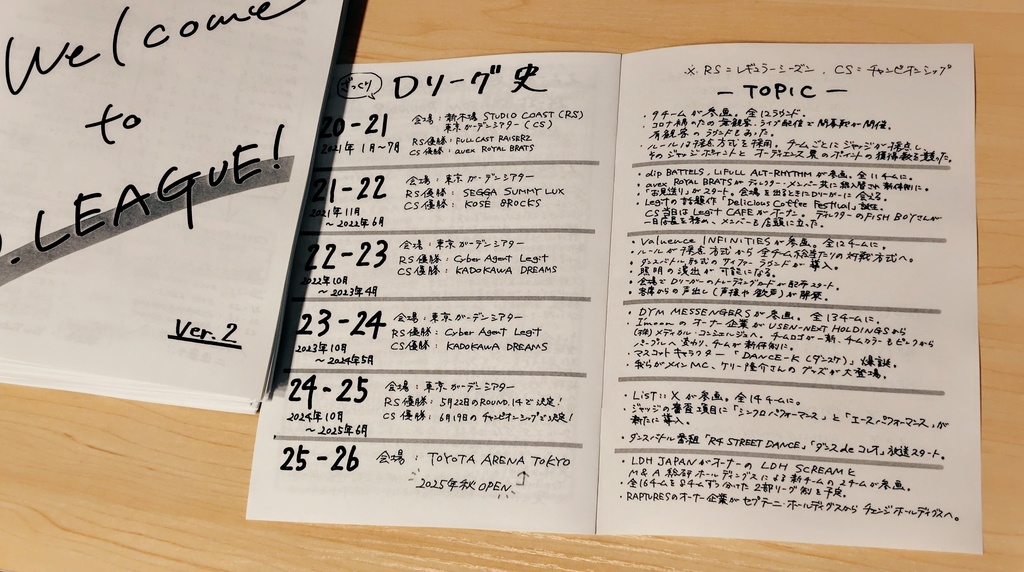 Welcome
to
D.LEAGUE!
Ver.2
ざっくり
Dリーグ史
20-21
2021年1月~7月
会場:新木場STUDIO COAST(RS)
東京ガーデンシアター(CS)
RS優勝:FULLCAST RAISERZ
CS優勝:avex ROYAL BRATS
21-22
2021年11月
~2022年6月
会場:東京ガーデンシアター
RS優勝:SEGGA SUMMY LUX
CS優勝:KOSÉ 8ROCKS
22-23
2022年10月
~2023年4月
会場:東京ガーデンシアター
RS優勝:Cyber Agent Legit
CS優勝:KADOKAWA DREAMS
23-24
2023年10月
~2024年5月
会場:東京ガーデンシアター
RS優勝:Cyber Agent Legit
CS優勝:KADOKAWA DREAMS
24-25
2024年10月
~2025年6月
会場:東京ガーデンシアター
RS優勝:5月22日のROUND.14で決定!
CS優勝:6月19日のチャンピオンシップで決定!
25-26
会場:TOYOTA ARENA TOKYO
2025年秋OPEN
※RS=レギュラーシーズン、CS=チャンピオンシップ
-TOPIC-
・9チームが参画。全12ラウンド。
・コロナ禍のため無観客、ライブ配信で開幕戦が開催。
有観客のラウンドもあった。
・ルールは採点方式を採用。チームごとにジャッジが採点し、
そのジャッジポイントとオーディエンス票のポイントの獲得数を競った。
・dip BATTLES, LIFULL ALT-RHYTHMが参画。全11チームに。
・avex ROYAL BRATSがディレクター・メンバー共に総入替され新体制に。
・「お見送り」がスタート。会場を出るときにDリーガーに会える。
・Legitの話題作「Delicious Coffee Festival」誕生。
CS当日はLegit CAFEがオープン。ディレクターのFISH BOYさんが
一日店長を務め、メンバーも店頭に立った。
・Valuence INFINITIESが参画。全12チームに。
・ルールが採点方式から全チーム総当たりの対戦方式へ。
・ダンスバトル形式のサイファーラウンドが導入。
・照明の演出が可能になる。
・会場でDリーガーのトレーディングカードが配布スタート。
・客席からの声出し(声援や歓声)が解禁。
・DYM MESSENGERSが参画。全13チームに。
・I'moonのオーナー企業がUSEN-NEXT HOLDINGSから
(株)メディカル・コンシェルジュへ。チームロゴが一新、チームカラーもピンクから
パープルへ変わり、チームが新体制に。
・マスコットキャラクター「DANCE-K(ダンスケ)」爆誕。
・我らがメインMC、ケリー隆介さんのグッズが大登場。
・LIST::Xが参画。全14チームに。
・ジャッジの審査項目に「シンクロパフォーマンス」と「エースパフォーマンス」が
新たに導入。
・ダンスバトル番組「R4 STREET DANCE」「ダンスdeコレオ」放送スタート。
・LDH JAPANがオーナーのLDH SCREAMと
M&A総研ホールディングスによる新チームの2チームが参画。
・全16チームを8チームずつ分けた2部リーグ制を予定。
・RAPTURESのオーナー企業がセプテーニ・ホールディングスからチェンジホールディングスへ。